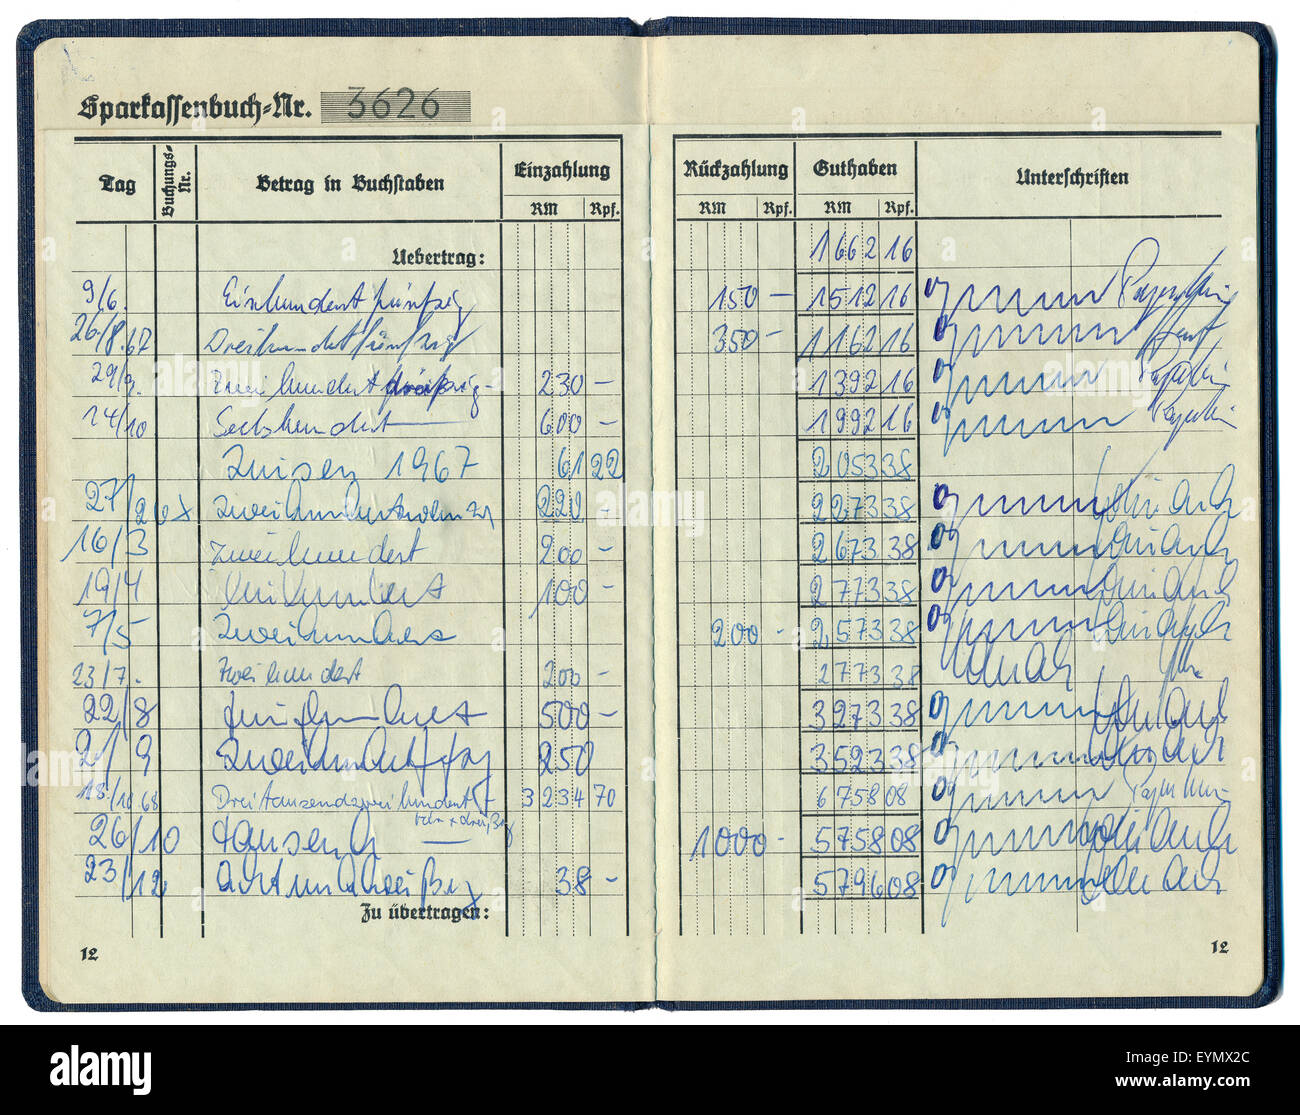 Sparkassenbuch-Nr. 3626
Tag Buchungs-Nr. Betrag in Buchstaben Einzahlung Rückzahlung Guthaben Unterschriften
RM Rpf. RM Rpf. RM Rpf.
Uebertrag: 1662 16
9/6. Einhundertfünfzig 150 – 1512 16
26/8.67 Dreihundertfünfzig 350 – 1162 16
29/9. Zweihundertdreißig – 230 – 1392 16
14/10 Sechshundert 600 – 1992 16
Zinsen 1967 61 22 2053 38
27/2 68 220 – 2273 38
16/3 Zweihundert 200 – 2673 38
19/4 Einhundert 100 – 2773 38
7/5 Zweihundert 200 – 2573 38
23/7. Zweihundert 200 – 2773 38
22/8 Fünfhundert 500 – 3273 38
2/9 250 3523 38
18/10 68 Dreitausendzweihundert 3234 70 6758 08
26/10 tausend 1000 – 5758 08
23/12 Achtunddreißig 38 – 5796 08
Zu übertragen:
12 12
alamy
Image ID: EYMX2C
www.alamy.com